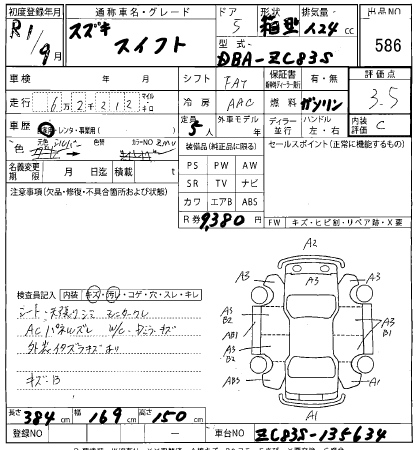 初度登録年月 通称車名・グレード ドア 形状 排気量 出品NO
R1/9月 スズキ スイフト 5 箱型 1.24 cc 586
型式 DBA-ZC83S
車検 年 月 シフト FAT 保証書 有・無 評価点
走行 6万2千212 マイル キロ 冷房 AAC 燃料 ガソリン 3.5
車歴 自家用・レンタ・事業用( ) 定員 5人 外車モデル年 ディーラー 並行 ハンドル 左・右 内装評価 C
色 元色 シルバー 色替 カラーNO ZMU 装備品(純正品に限る) セールスポイント(正常に機能するもの)
名義変更期限 月 日迄 積載 t PS PW AW
注意事項(欠品・修復・不具合箇所および状態) SR TV ナビ
カワ エアB ABS
R券 9,380 円 FW キズ・ヒビ割・リペア跡・X要
検査員記入 内装 キズ・汚レ・コゲ・穴・スレ・キレ
シート・天張りシミ
ACパネルズレ
外装イタズラキズあり
キズ・B
A2
A3 A3
A3 B2
AB1
A3 B2
A3 B1
AB3 A1
A1
長さ 384 cm 幅 169 cm 高さ 150 cm
登録NO ― 車台NO ZC83S-135634